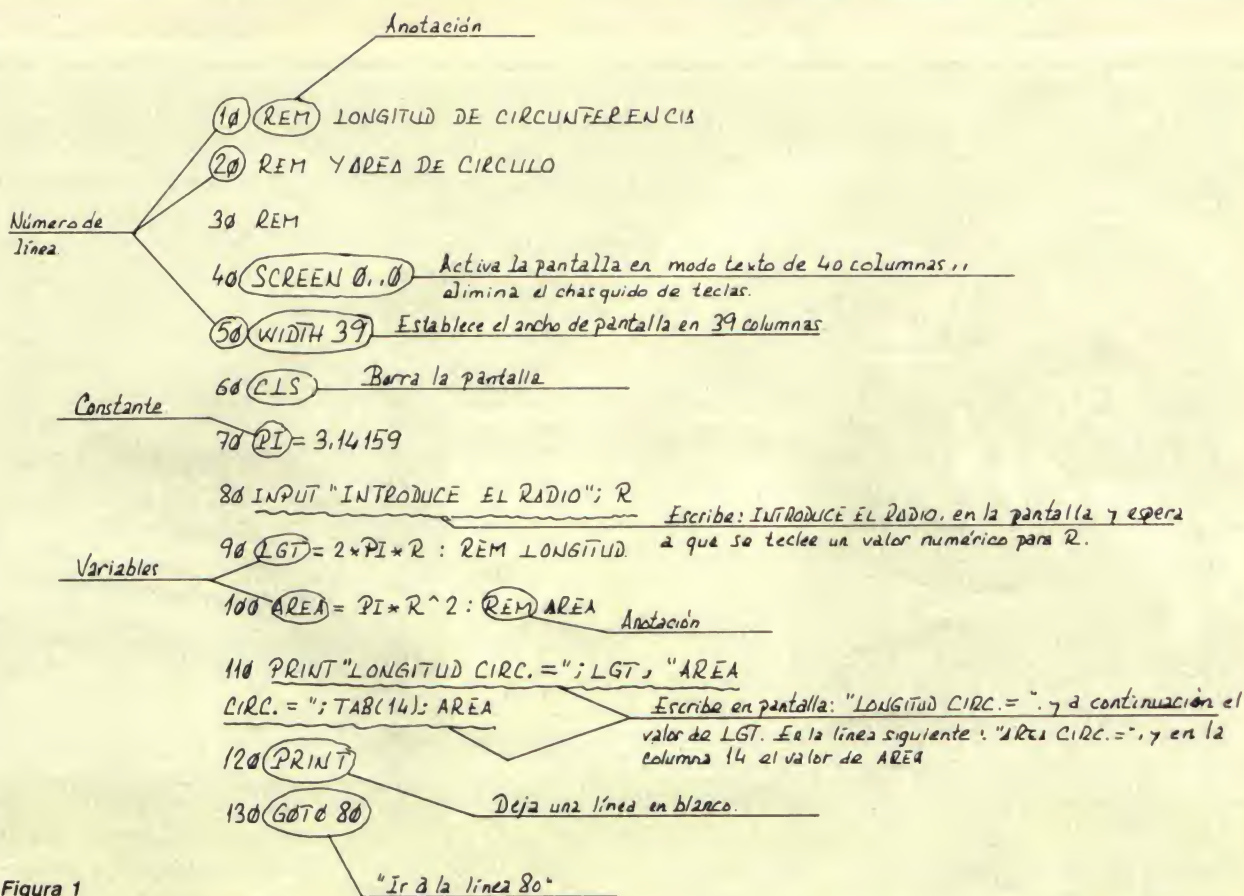 Anotación
10 REM LONGITUD DE CIRCUNFERENCIA
20 REM Y AREA DE CIRCULO
Número de
línea.
30 REM
40 SCREEN 0,,0 Activa la pantalla en modo texto de 40 columnas,,
elimina el chasquido de teclas.
50 WIDTH 39 Establece el ancho de pantalla en 39 columnas
60 CLS Borra la pantalla
Constante
70 PI = 3.14159
80 INPUT "INTRODUCE EL RADIO"; R
Escribe: INTRODUCE EL RADIO, en la pantalla y espera
a que se teclee un valor numérico para R.
90 LGT = 2*PI*R : REM LONGITUD.
Variables
100 AREA = PI*R^2 : REM AREA
Anotación
110 PRINT "LONGITUD CIRC.="; LGT, "AREA
CIRC. = "; TAB(14); AREA
Escribe en pantalla: "LONGITUD CIRC.= ". y a continuación el
valor de LGT. En la línea siguiente: "AREA CIRC.=", y en la
columna 14 el valor de AREA
120 PRINT
Deja una línea en blanco.
130 GOTO 80
"Ir a la línea 80"
Figura 1